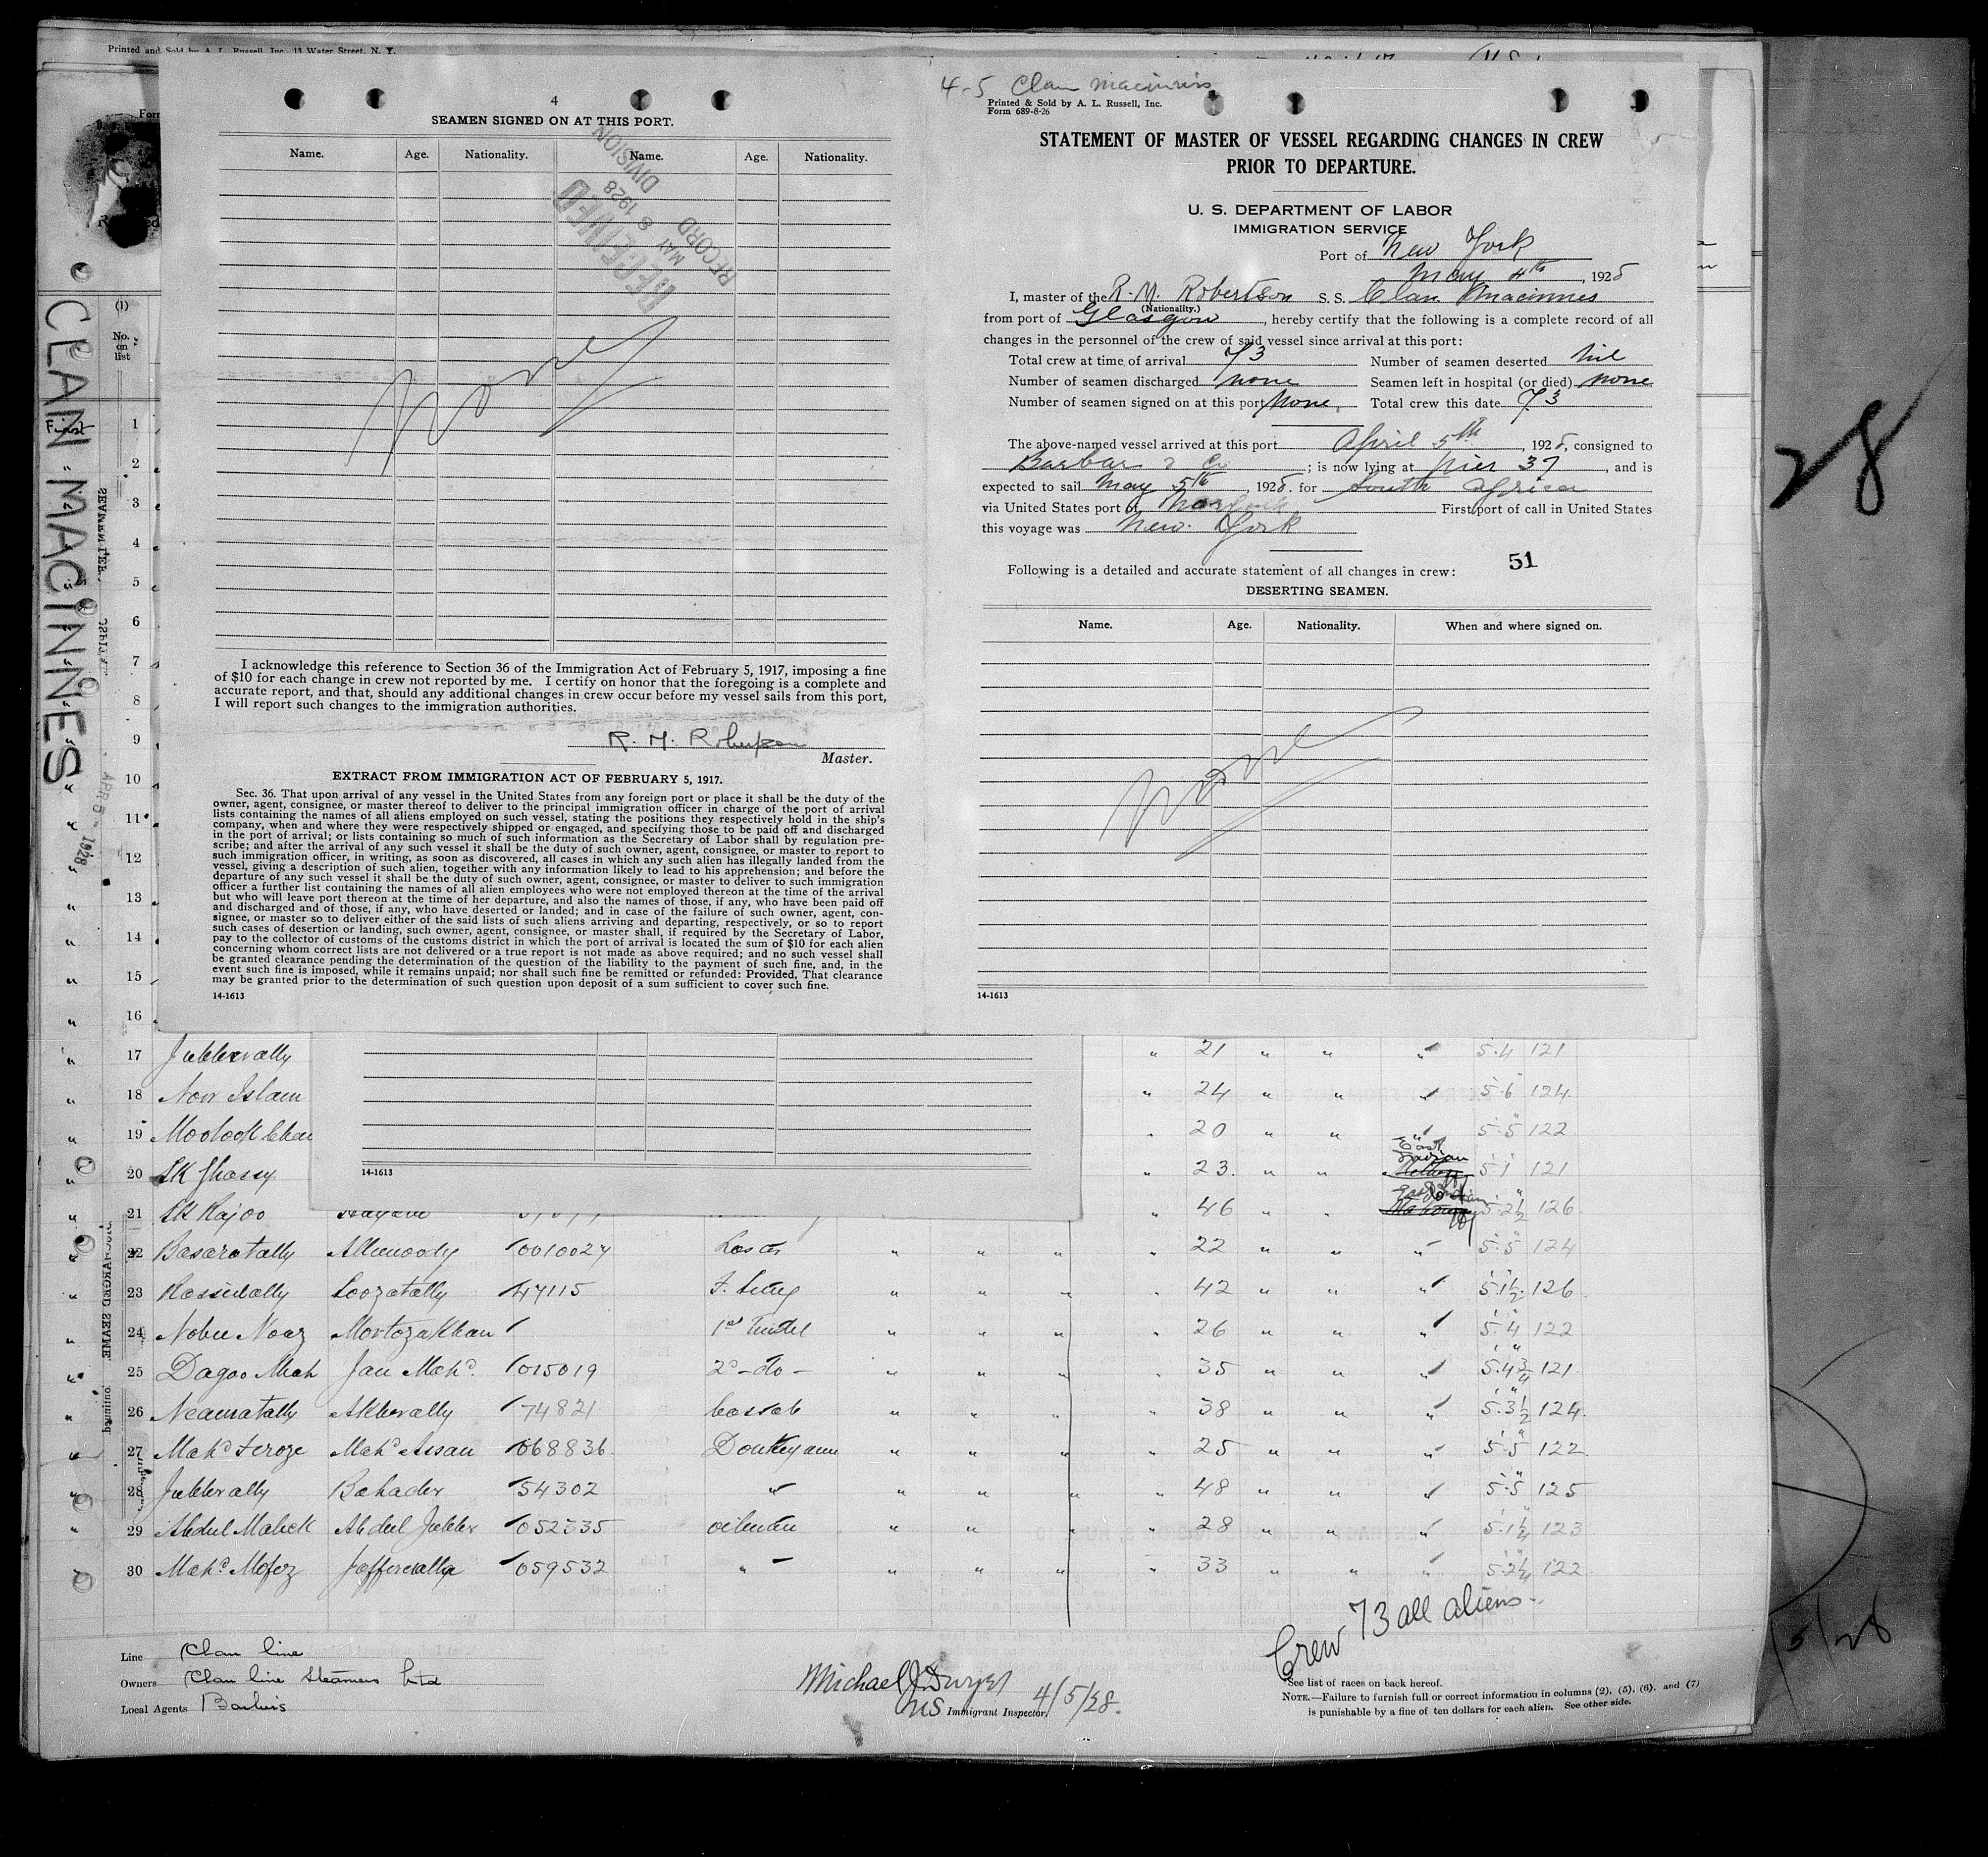 Printed and Sold by A. L. Russell, Inc. 13 Water Street, N. Y.
4
SEAMEN SIGNED ON AT THIS PORT.
Name. Age. Nationality. Name. Age. Nationality.
RECEIVED
MAY 8 1928
RECORD DIVISION
None
I acknowledge this reference to Section 36 of the Immigration Act of February 5, 1917, imposing a fine
of $10 for each change in crew not reported by me. I certify on honor that the foregoing is a complete and
accurate report, and that, should any additional changes in crew occur before my vessel sails from this port,
I will report such changes to the immigration authorities.
R. M. Robertson
Master.
EXTRACT FROM IMMIGRATION ACT OF FEBRUARY 5, 1917.
Sec. 36. That upon arrival of any vessel in the United States from any foreign port or place it shall be the duty of the
owner, agent, consignee, or master thereof to deliver to the principal immigration officer in charge of the port of arrival
lists containing the names of all aliens employed on such vessel, stating the positions they respectively hold in the ship's
company, when and where they were respectively shipped or engaged, and specifying those to be paid off and discharged
in the port of arrival; or lists containing so much of such information as the Secretary of Labor shall by regulation pre-
scribe; and after the arrival of any such vessel it shall be the duty of such owner, agent, consignee, or master to report to
such immigration officer, in writing, as soon as discovered, all cases in which any such alien has illegally landed from the
vessel, giving a description of such alien, together with any information likely to lead to his apprehension; and before the
departure of any such vessel it shall be the duty of such owner, agent, consignee, or master to deliver to such immigration
officer a further list containing the names of all alien employees who were not employed thereon at the time of the arrival
but who will leave port thereon at the time of her departure, and also the names of those, if any, who have been paid off
and discharged and of those, if any, who have deserted or landed; and in case of the failure of such owner, agent, con-
signee, or master so to deliver either of the said lists of such aliens arriving and departing, respectively, or so to report
such cases of desertion or landing, such owner, agent, consignee, or master shall, if required by the Secretary of Labor,
pay to the collector of customs of the customs district in which the port of arrival is located the sum of $10 for each alien
concerning whom correct lists are not delivered or a true report is not made as above required; and no such vessel shall
be granted clearance pending the determination of the question of the liability to the payment of such fine, and, in the
event such fine is imposed, while it remains unpaid; nor shall such fine be remitted or refunded: Provided, That clearance
may be granted prior to the determination of such question upon deposit of a sum sufficient to cover such fine.
14-1613
4-5 Clan Macinnis
Printed & Sold by A. L. Russell, Inc.
Form 689-8-26
STATEMENT OF MASTER OF VESSEL REGARDING CHANGES IN CREW
PRIOR TO DEPARTURE.
U. S. DEPARTMENT OF LABOR
IMMIGRATION SERVICE
Port of New York
May 4th, 1928
I, master of the R. M. Robertson S. S. Clan Macinnes
(Nationality.)
from port of Glasgow, hereby certify that the following is a complete record of all
changes in the personnel of the crew of said vessel since arrival at this port:
Total crew at time of arrival 73 Number of seamen deserted Nil
Number of seamen discharged none Seamen left in hospital (or died) none
Number of seamen signed on at this port None. Total crew this date 73
The above-named vessel arrived at this port April 5th, 1928, consigned to
Barbar & Co; is now lying at pier 37, and is
expected to sail May 5th, 1928. for South Africa
via United States port of First port of call in United States
this voyage was New York
51
Following is a detailed and accurate statement of all changes in crew:
DESERTING SEAMEN.
Name. Age. Nationality. When and where signed on.
None
14-1613
28
CLAN MACINNES
APR 5 - 1928
(1)
No. on list
1
2
3
4
5
6
7
8
9
10
11
12
13
14
15
16
17 Jubberally " 21 " " " 5.4 121
18 Noor Islam " 24 " " " 5.6 124.
19 Moolook " 20 " " " 5.5 122
20 SK Ghassy " 23. " " East Indian 5.1 121
21 SK Rajoo " 46 " " East Indian 5.2½ 126
14-1613
22 Basaratally Allumoody 0010027 Lascar " " " " 22 " " " 5.5 124
23 Rossidally Soozatally 47115 " " " " 42 " " " 5.1½ 126
24 Nobee Noaz Mortozakhan 1st Tindel " " " " 26 " " " 5.4 122
25 Dagoo Meah Jan Mahd. 015019 2d -do- " " " " 35 " " " 5.4¾ 121
26 Neamatally Akberally 74821 Cassab " " " " 38 " " " 5.3½ 124.
27 Mahd Feroze Mahd Assan 068836 Donkeyman " " " " 25 " " " 5.5 122
28 Jubberally Bahader 54302 " " " " " 48 " " " 5.5 125
29 Abdul Malick Abdul Jubber 052335 oilman " " " " 28 " " " 5.1¼ 123
30 Mahd. Mofoz Jafferally 059532 " " " " " 33 " " " 5.2¼ 122
Crew 73 all aliens
Line Clan line
Owners Clan line Steamers Ltd
Local Agents Barbers
Michael J. Dwyer
US Immigrant Inspector 4/5/28.
See list of races on back hereof.
NOTE.—Failure to furnish full or correct information in columns (2), (5), (6), and (7)
is punishable by a fine of ten dollars for each alien. See other side.